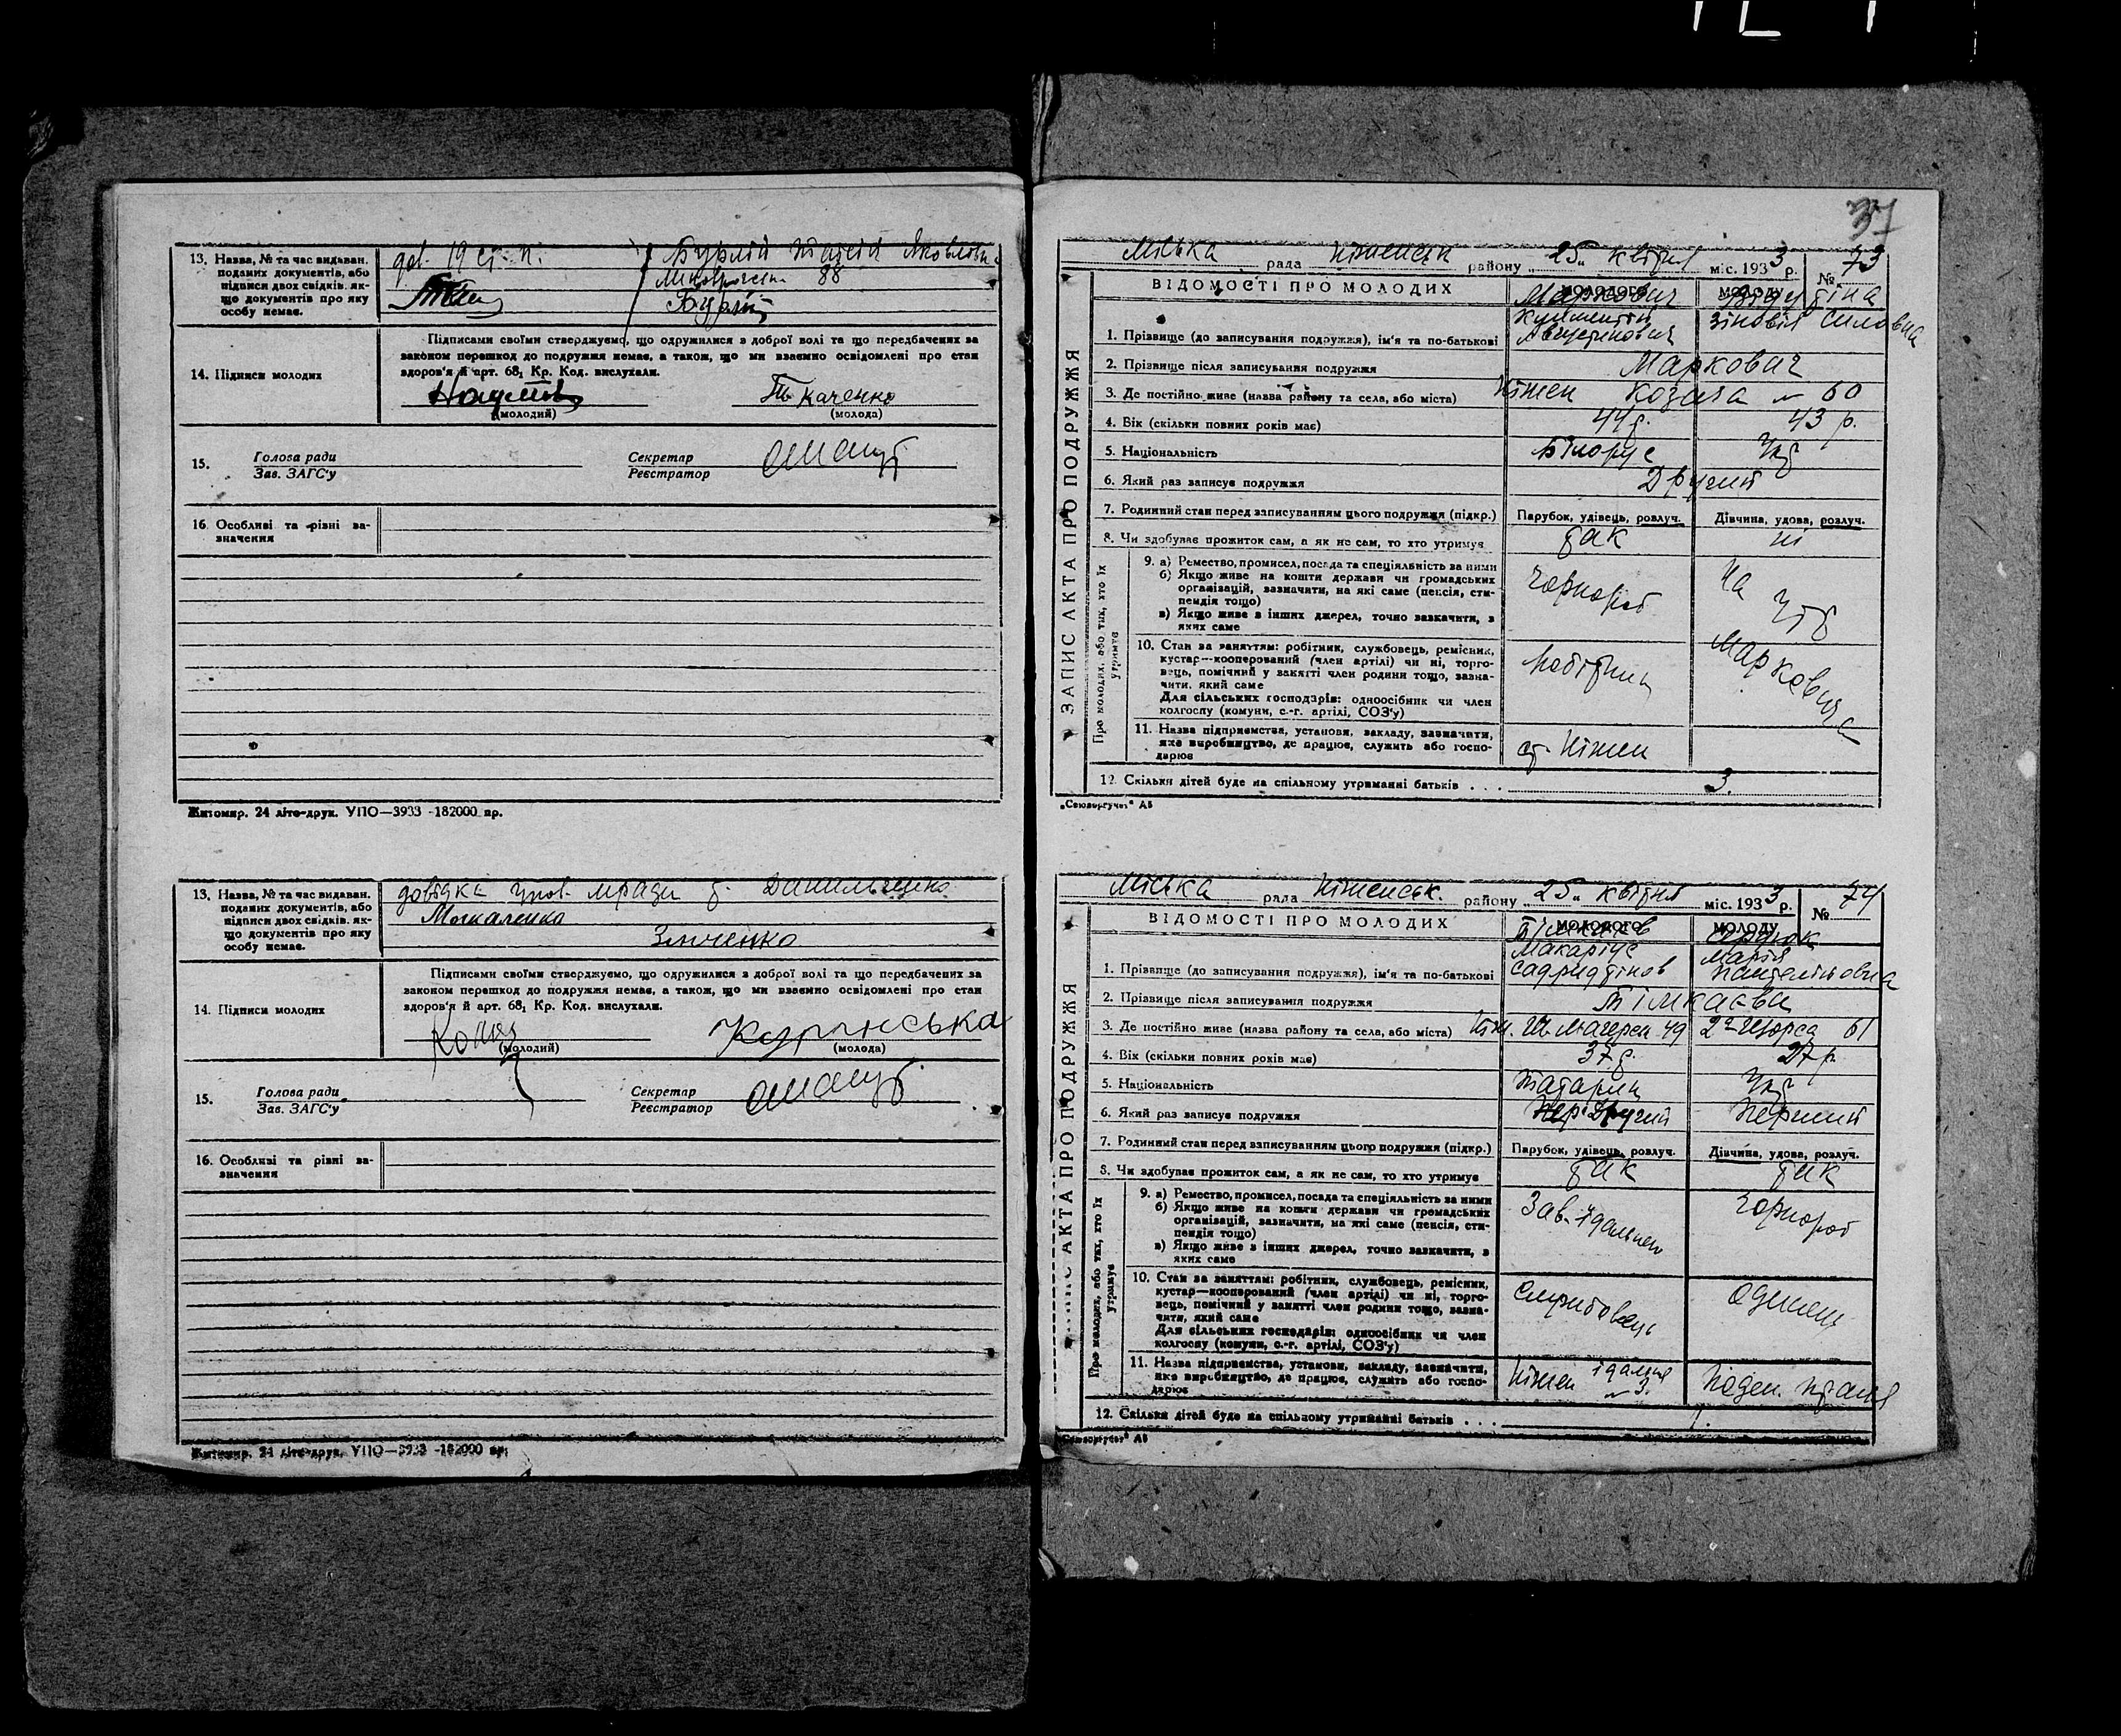 13. Назва, № та час видаван.
поданих документів, або
підписи двох свідків, як-
що документів про яку
особу немає.
Яковлівна
88
14. Підписи молодих
Підписами своїми стверджуємо, що одружилися з доброї волі та що передбачених за
законом перешкод до подружжя немає, а також, що ми взаємно освідомлені про стан
здоров'я й арт. 68₁ Кр. Код. вислухали.
Ткаченко
(молодий) (молода)
15. Голова ради Секретар
Зав. ЗАГС'у Реєстратор
16. Особливі та рівні за-
значення
Житомир. 24 літо-друк. УПО—3933 -182000 пр.
13. Назва, № та час видаван.
поданих документів, або
підписи двох свідків, як-
що документів про яку
особу немає.
довідка
Зінченко
14. Підписи молодих
Підписами своїми стверджуємо, що одружилися з доброї волі та що передбачених за
законом перешкод до подружжя немає, а також, що ми взаємно освідомлені про стан
здоров'я й арт. 68₁ Кр. Код. вислухали.
(молодий) (молода)
15. Голова ради Секретар
Зав. ЗАГС'у Реєстратор
16. Особливі та рівні за-
значення
Житомир. 24 літо-друк. УПО—3933 -182000 пр.
37
Міська рада Ніженськ району „25„ квітня міс. 1933 р. № 73
ЗАПИС АКТА ПРО ПОДРУЖЖЯ
ВІДОМОСТІ ПРО МОЛОДИХ
МОЛОДОГО МОЛОДУ
Маркович
Зіновія Силовна
1. Прізвище (до записування подружжя), ім'я та по-батькові
Августинович
2. Прізвище після записування подружжя Маркович
3. Де постійно живе (назва району та села, або міста) Ніжен Козача № 60
4. Вік (скільки повних років має) 44 р. 43 р.
5. Національність Білорус Укр
6. Який раз записує подружжя Другий
7. Родинний стан перед записуванням цього подружжя (підкр.) Парубок, удівець, розлуч. Дівчина, удова, розлуч.
8. Чи здобуває прожиток сам, а як не сам, то хто утримує так ні
Про молодих, або тих, хто їх утримує
9. а) Ремество, промисел, посада та спеціяльність за ними
б) Якщо живе на кошти держави чи громадських
організацій, зазначити, на які саме (пенсія, сти-
пендія тощо)
в) Якщо живе з інших джерел, точно зазначити, з
яких саме
Чорнороб На утр
10. Стан за заняттям: робітник, службовець, ремісник,
кустар—кооперований (член артілі) чи ні, торго-
вець, помічний у занятті член родини тощо, зазна-
чити, який саме
Для сільських господарів: одноосібник чи член
колгоспу (комуни, с.-г. артілі, СОЗ'у)
Робітник Марковича
11. Назва підприємства, установи, закладу, зазначити,
яке виробництво, де працює, служить або госпо-
дарює
ст. Ніжен
12. Скільки дітей буде на спільному утриманні батьків . . . 3.
„Союзоргучет" А5
Міська рада Ніженськ. району „25„ квітня міс. 1933 р. № 74
ПРО ПОДРУЖЖЯ
ВІДОМОСТІ ПРО МОЛОДИХ
МОЛОДОГО МОЛОДУ
Марія
1. Прізвище (до записування подружжя), ім'я та по-батькові
Садриддінов
2. Прізвище після записування подружжя Тімкаєва
3. Де постійно живе (назва району та села, або міста) 49 Щорса 61
4. Вік (скільки повних років має) 37 р. 27 р.
5. Національність Татарин Укр
6. Який раз записує подружжя Другий Перший
7. Родинний стан перед записуванням цього подружжя (підкр.) Парубок, удівець, розлуч. Дівчина, удова, розлуч.
8. Чи здобуває прожиток сам, а як не сам, то хто утримує так так
Про молодих, або тих, хто їх утримує
9. а) Ремество, промисел, посада та спеціяльність за ними
б) Якщо живе на кошти держави чи громадських
організацій, зазначити, на які саме (пенсія, сти-
пендія тощо)
в) Якщо живе з інших джерел, точно зазначити, з
яких саме
Зав. їдальнею Чорнороб
10. Стан за заняттям: робітник, службовець, ремісник,
кустар—кооперований (член артілі) чи ні, торго-
вець, помічний у занятті член родини тощо, зазна-
чити, який саме
Для сільських господарів: одноосібник чи член
колгоспу (комуни, с.-г. артілі, СОЗ'у)
Службовець
11. Назва підприємства, установи, закладу, зазначити,
яке виробництво, де працює, служить або госпо-
дарює
Ніжен їдальня № 3. Поден. праця
12. Скільки дітей буде на спільному утриманні батьків . . . 1.
„Союзоргучет" А5